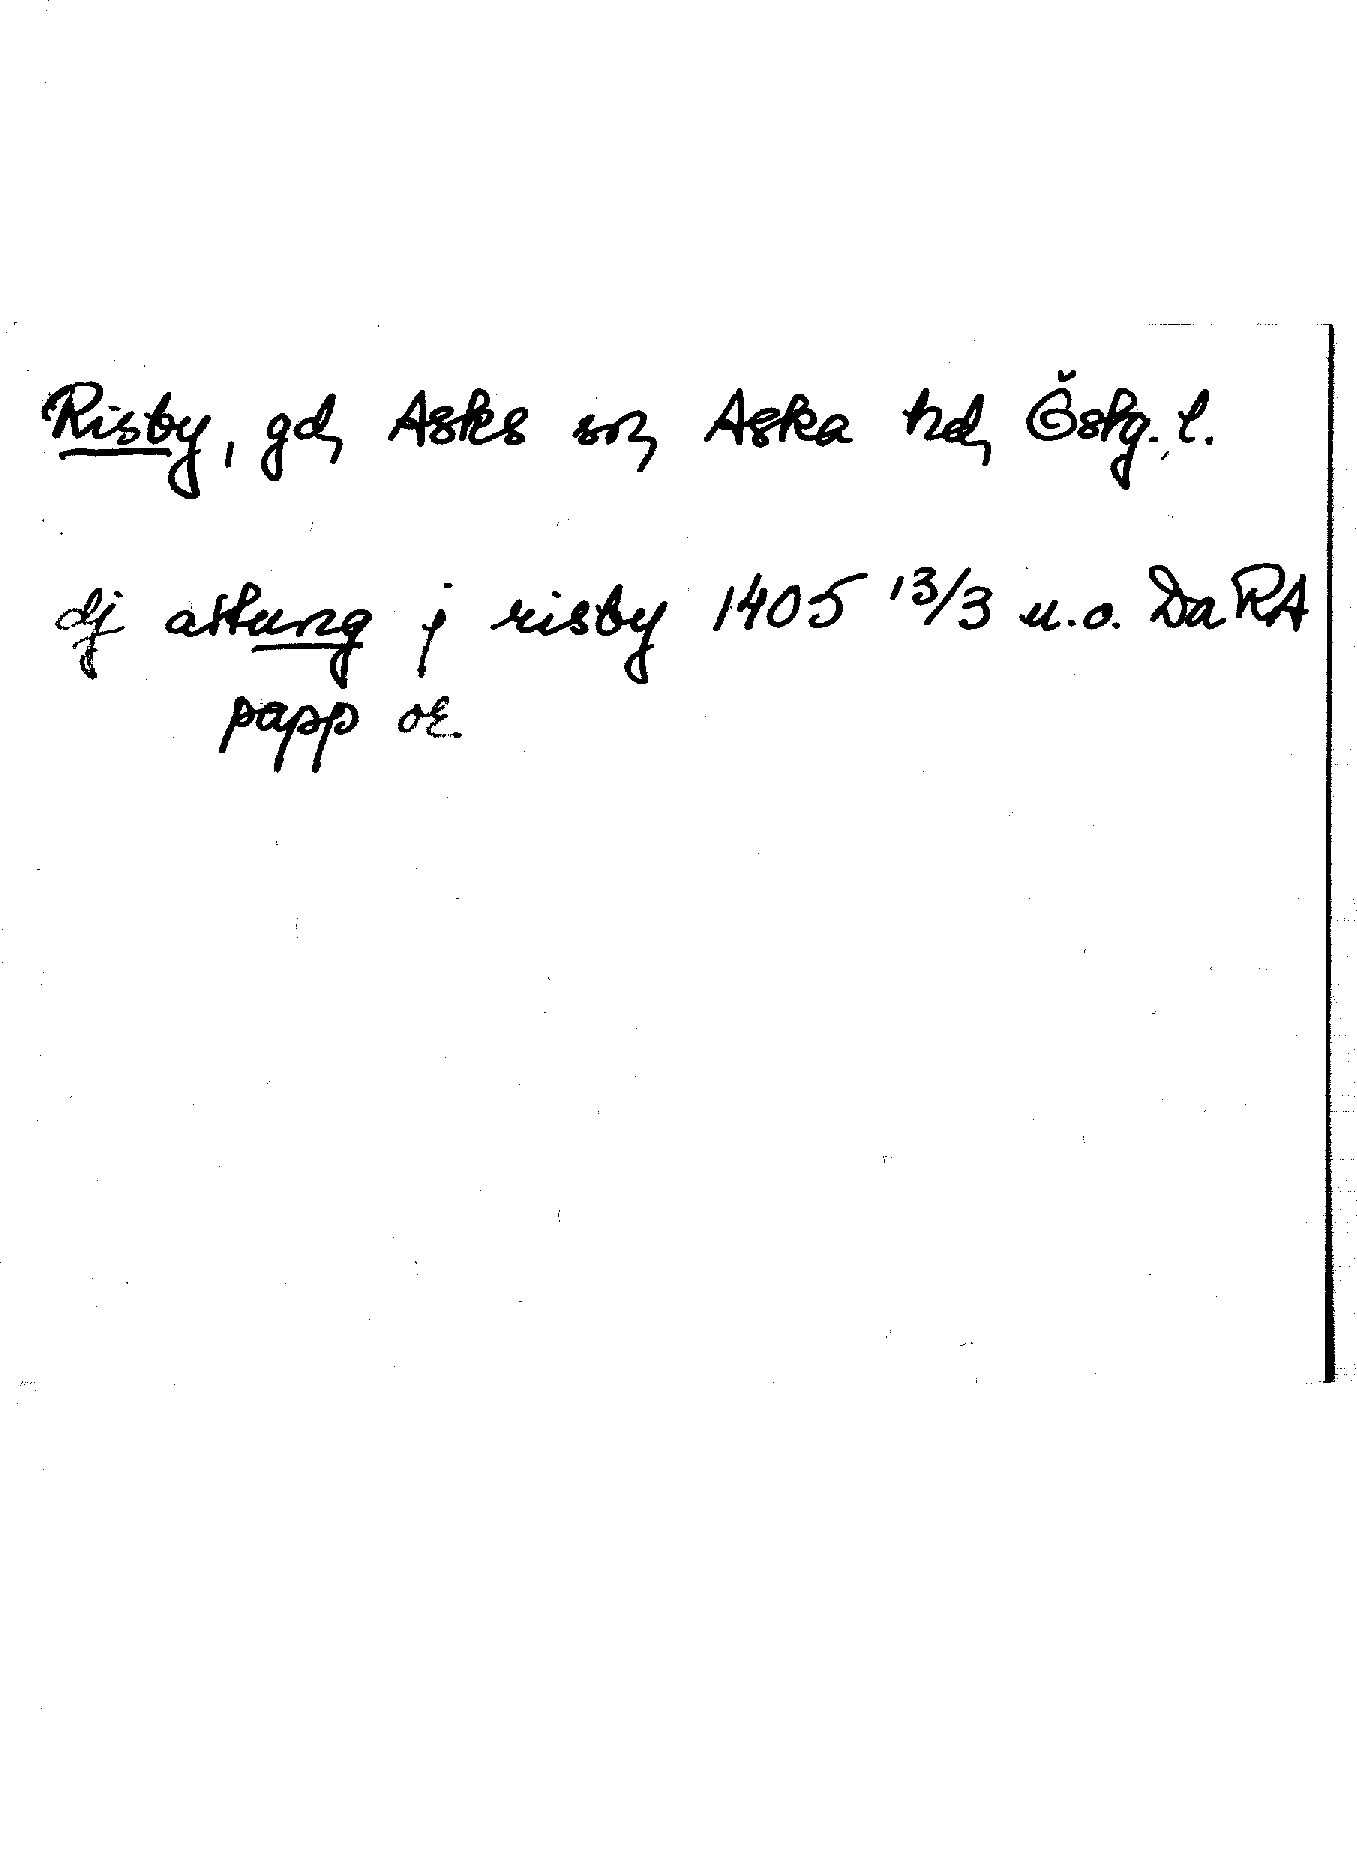 Risby, gd, Asks sn, Aska hd, Östg. l.
dj attung j risby 1405 13/3 u.o. Da RA
papp or.